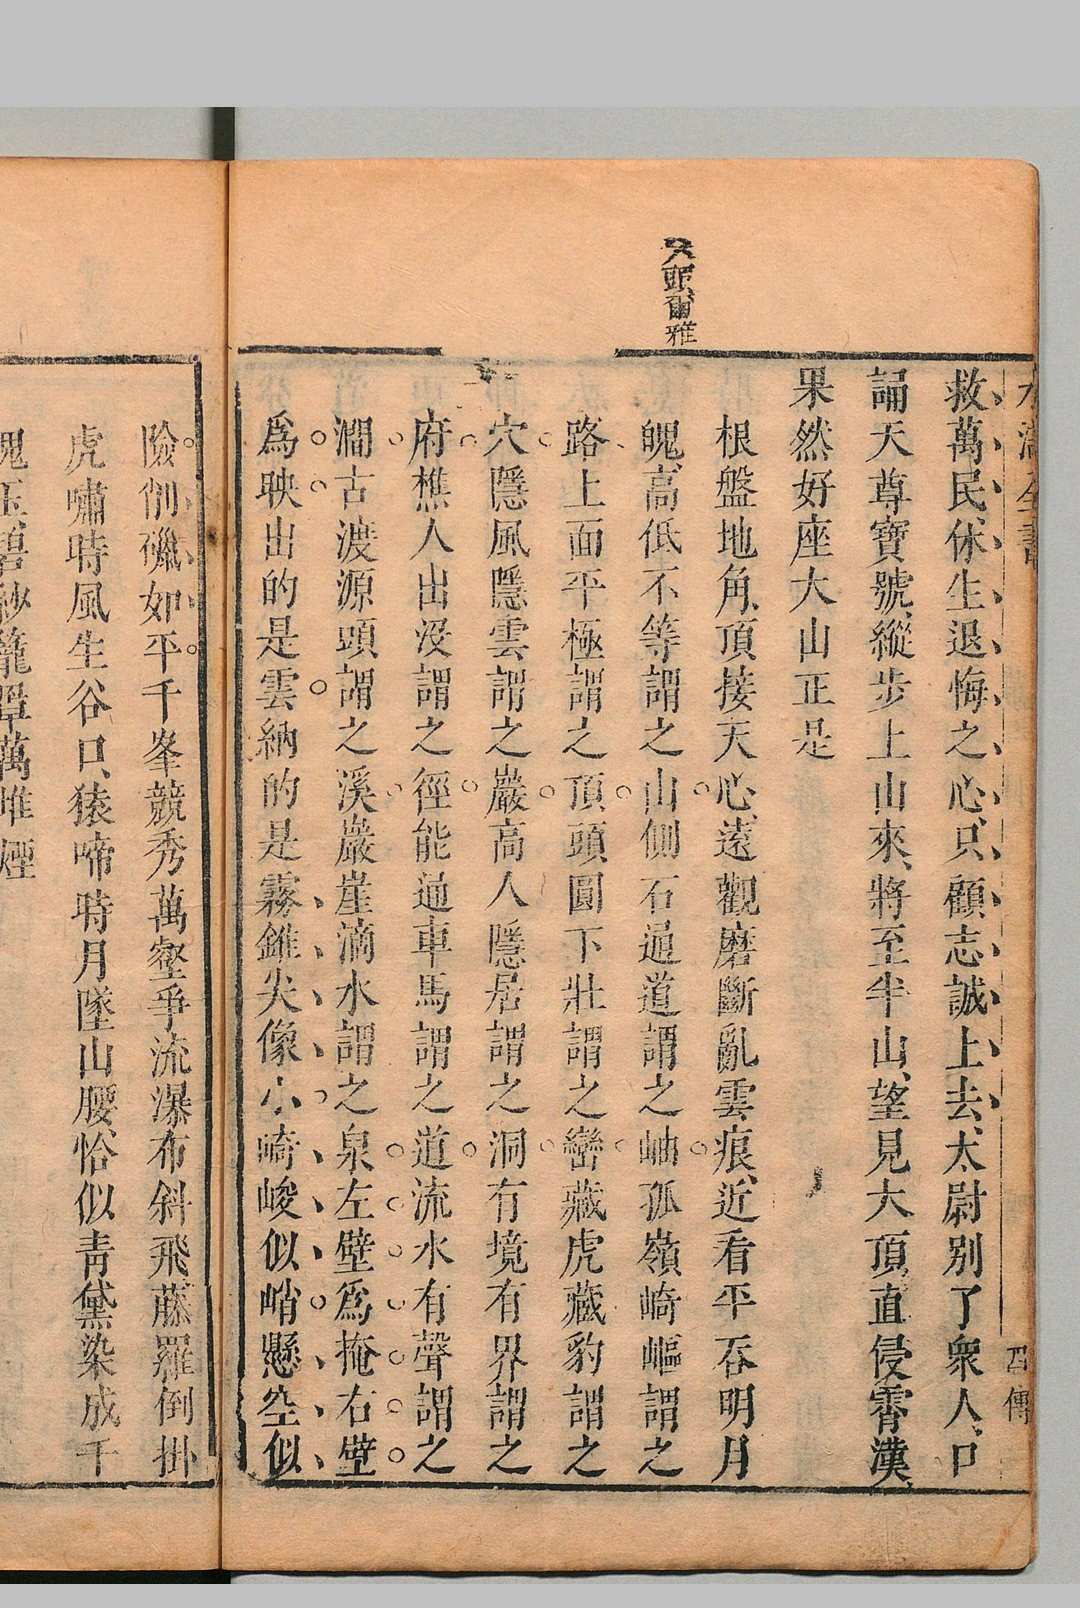 水滸全書
四傳
又頭爾雅
救萬民休生退悔之心只顧志誠上去太尉别了衆人口
誦天尊寶號縱步上山來將至半山望見大頂直侵霄漢
果然好座大山正是
根盤地角頂接天心遠觀磨斷亂雲痕近看平吞明月
魄高低不等謂之山側石通道謂之岫孤嶺崎嶇謂之
路上面平極謂之頂頭圓下壯謂之巒藏虎藏豹謂之
穴隱風隱雲謂之巖高人隱居謂之洞有境有界謂之
府樵人出没謂之徑能通車馬謂之道流水有聲謂之
澗古渡源頭謂之溪巖崖滴水謂之泉左壁爲掩右壁
爲映出的是雲納的是霧錐尖像小崎峻似峭懸空似
險削䃹如平千峯競秀萬壑爭流瀑布斜飛藤羅倒掛
虎嘯時風生谷口猿啼時月墜山腰恰似青黛染成千
塊玉碧紗籠罩萬堆煙